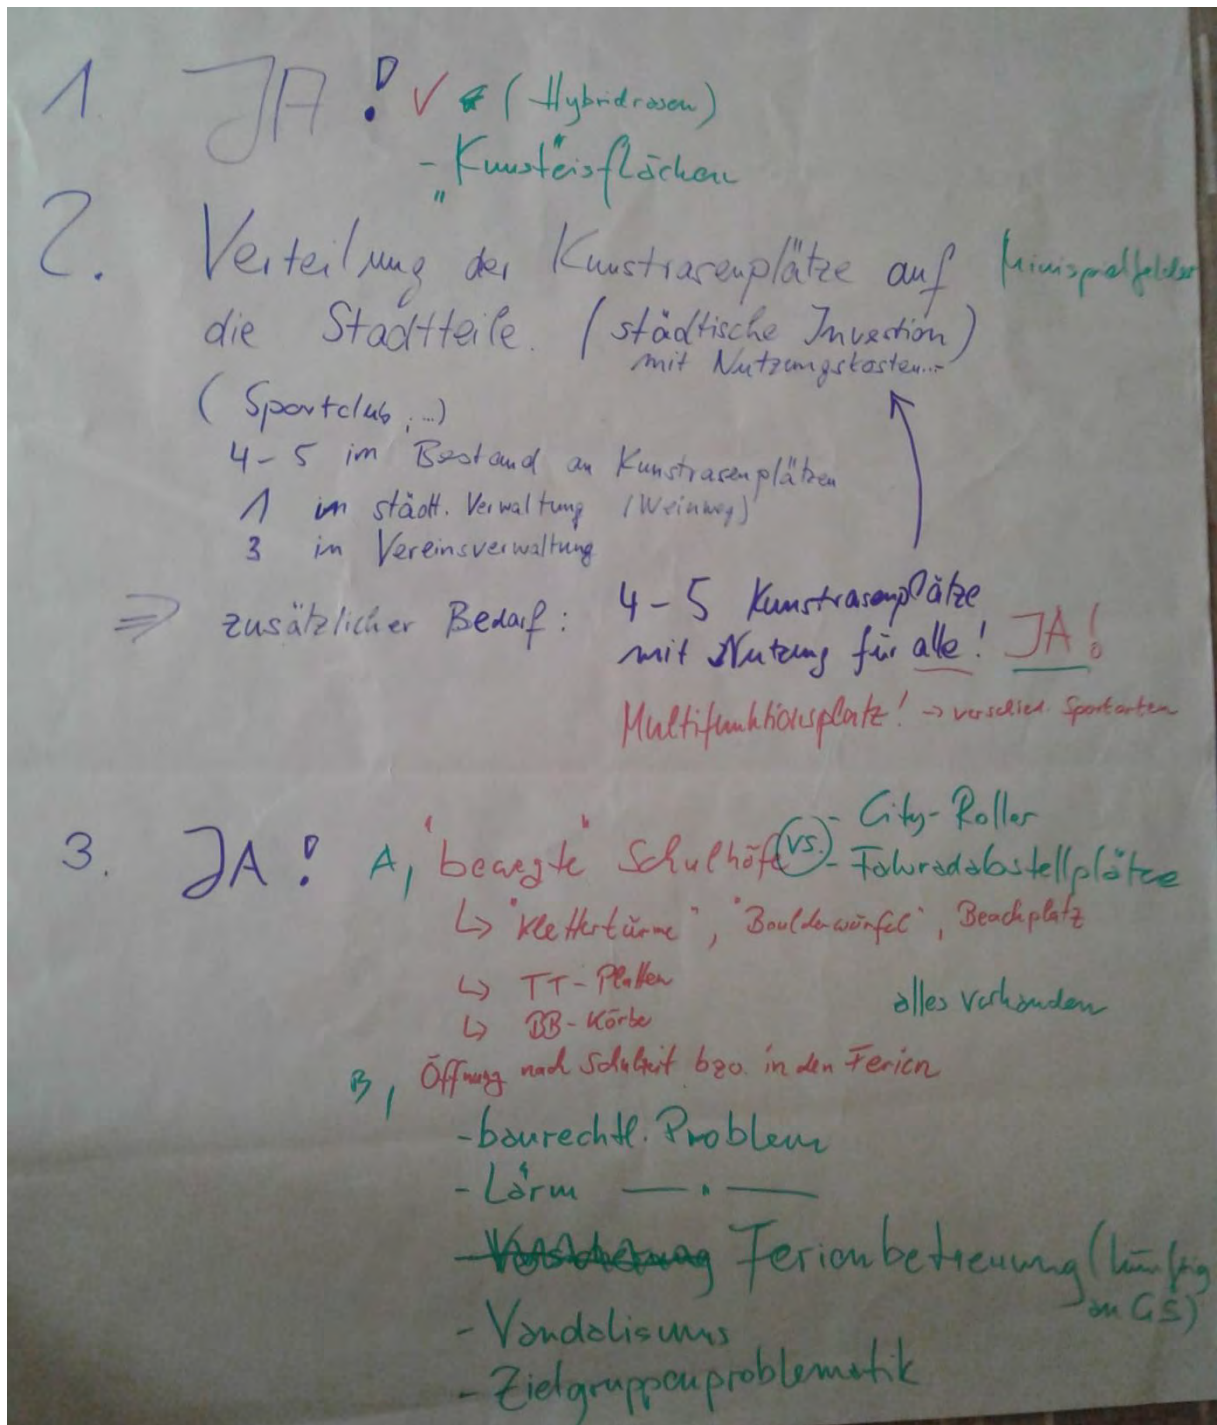 1. JA! ✓ (Hybridrasen)
- "Kunsteisflächen"
2. Verteilung der Kunstrasenplätze auf Minispielfelder
die Stadtteile. (städtische Invertion)
mit Nutzungskosten...
(Sportclub, ...)
4-5 im Bestand an Kunstrasenplätzen
1 in städt. Verwaltung (Weinweg)
3 in Vereinsverwaltung
⇒ zusätzlicher Bedarf: 4-5 Kunstrasenplätze
mit Nutzung für alle! JA!
Multifunktionsplatz! → verschied. Sportarten
- City-Roller
3. JA! A, "bewegte" Schulhöfe vs. - Fahrradabstellplätze
↳ "Klettertürme", "Boulderwürfel", Beachplatz
↳ TT-Platten
alles vorhanden
↳ BB-Körbe
B, Öffnung nach Schulzeit bzw. in den Ferien
- baurechtl. Problem
- Lärm — " —
Ferienbetreuung (künftig
an GS)
- Vandalismus
- Zielgruppenproblematik